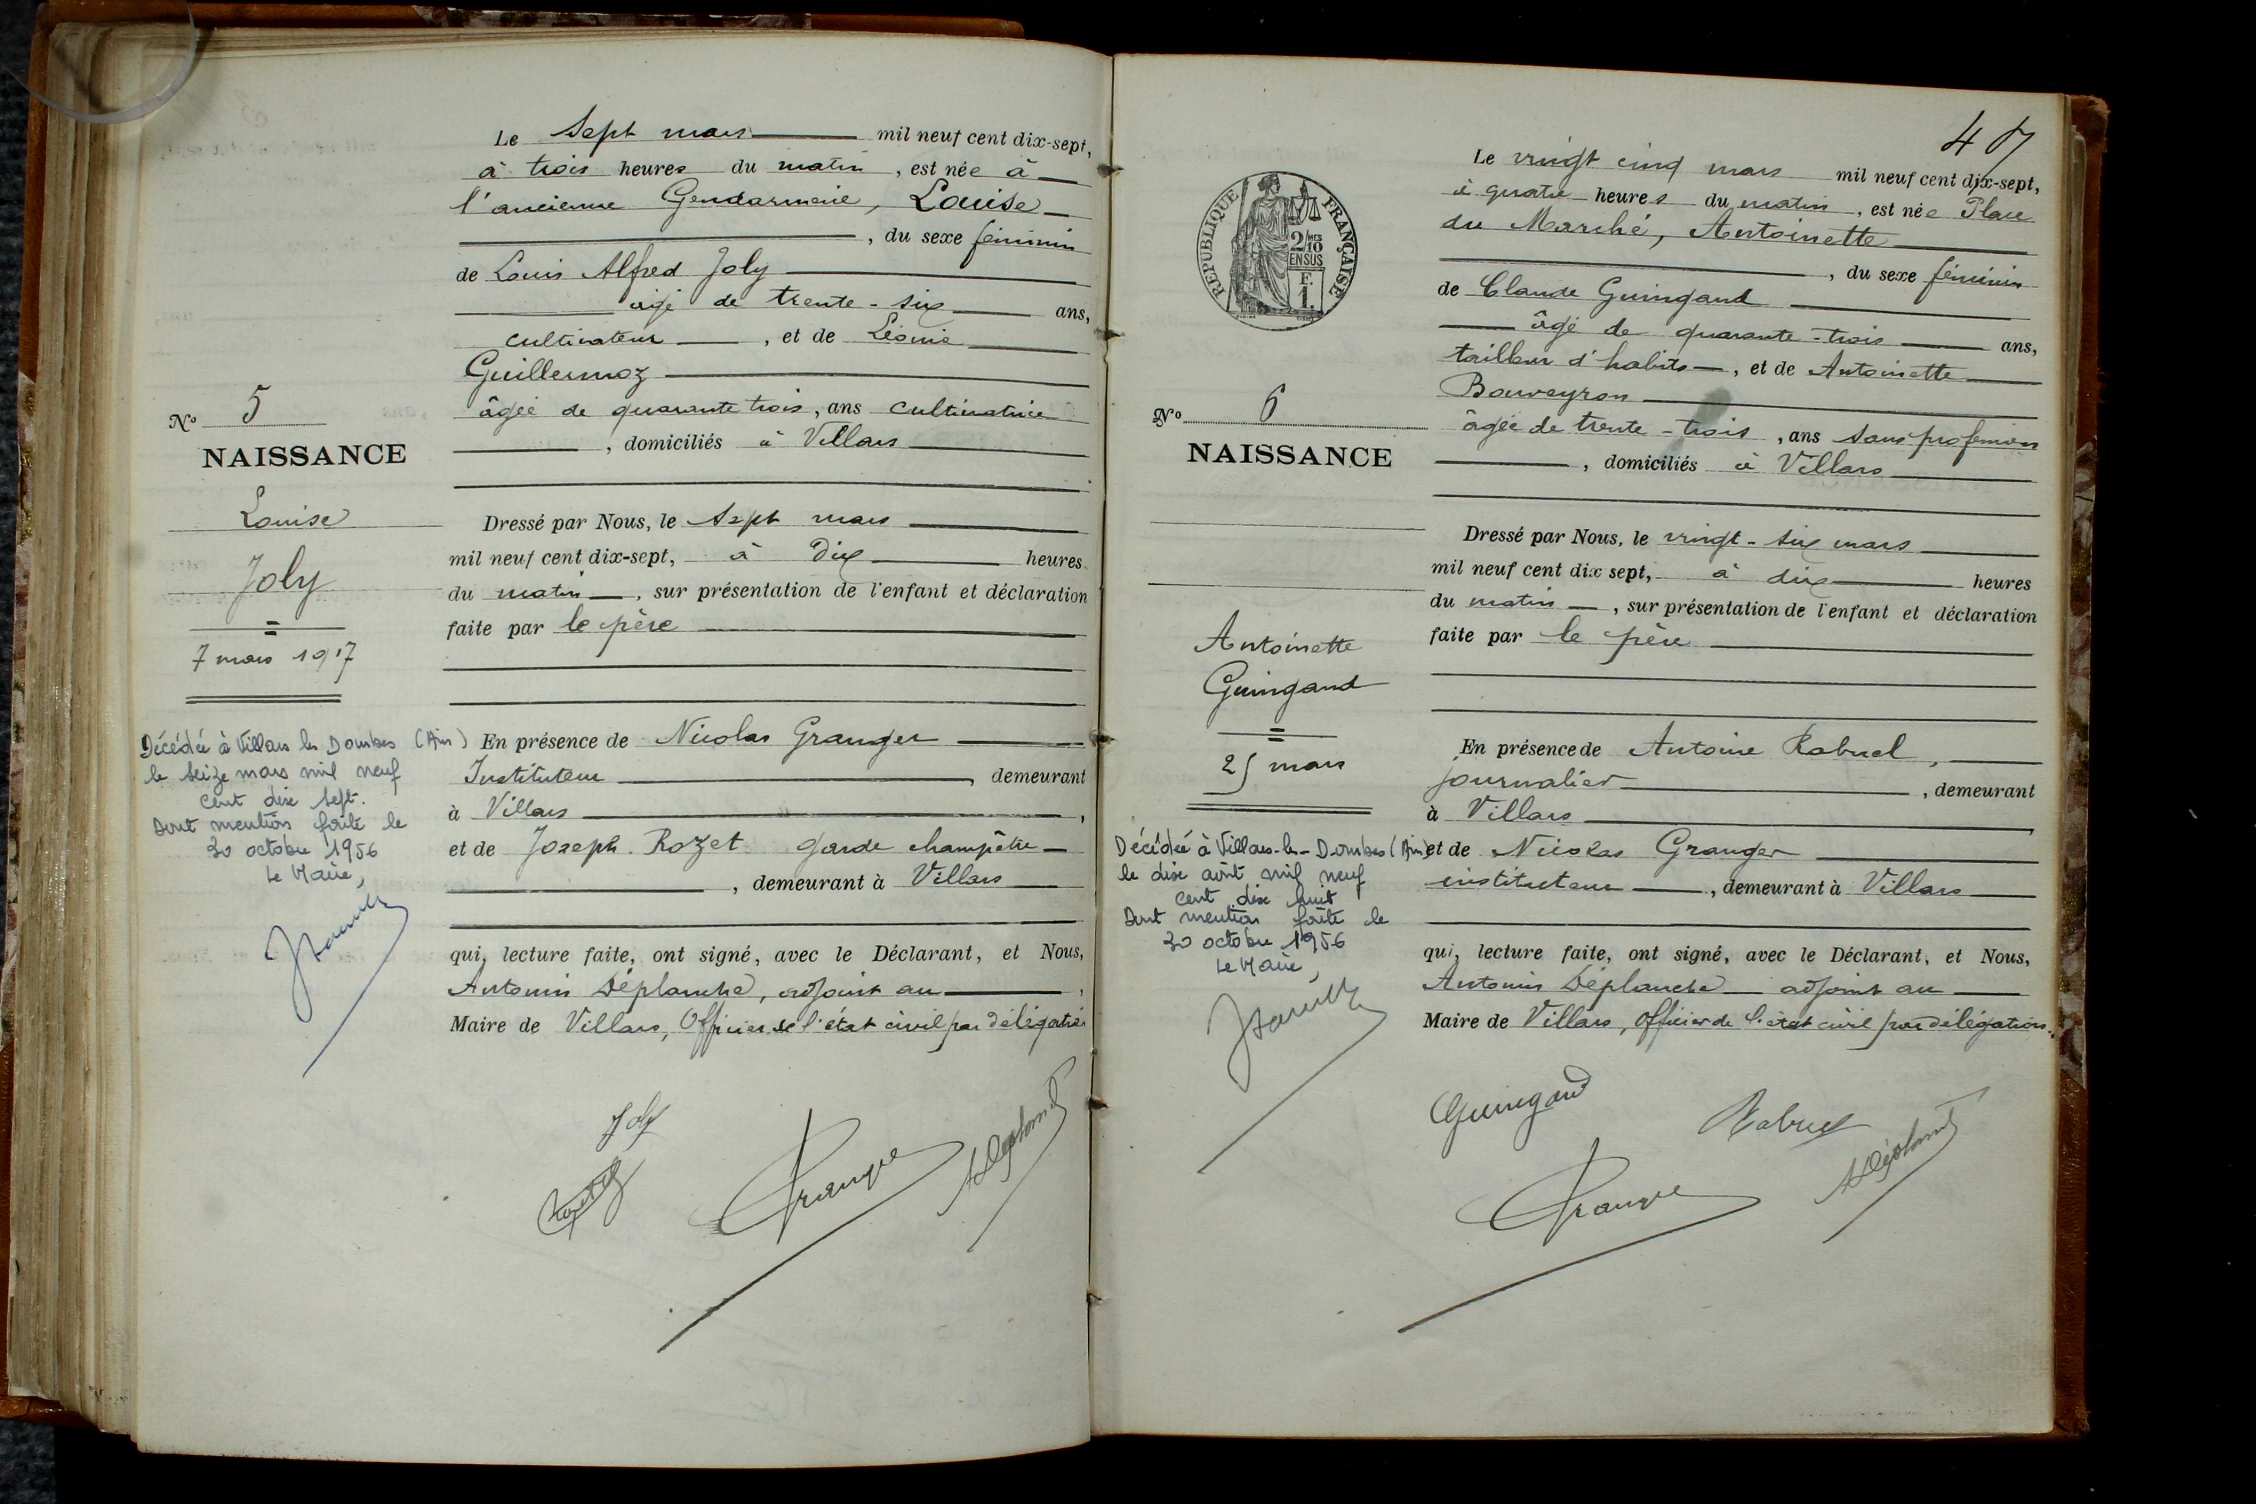 Le Sept mars mil neuf cent dix-sept,
à trois heures du matin, est née à
l'ancienne Gendarmerie, Louise
, du sexe féminin
de Louis Alfred Joly
âgé de trente-six ans,
cultivateur, et de Léonie
Guillermoz
âgée de quarante trois, ans cultivatrice
, domiciliés à Villars
No 5
NAISSANCE
Louise
Joly
7 mars 1917
Dressé par Nous, le Sept mars
mil neuf cent dix-sept, à dix heures
du matin, sur présentation de l'enfant et déclaration
faite par le père
Décédée à Villars les Dombes (Ain)
le seize mars mil neuf
cent dix sept.
Dont mention faite le
30 octobre 1956
Le Maire,
En présence de Nicolas Granger
Instituteur, demeurant
à Villars,
et de Joseph Rozet garde champêtre
, demeurant à Villars
qui, lecture faite, ont signé, avec le Déclarant, et Nous,
Antonin Déplanche, adjoint au,
Maire de Villars, Officier de l'état civil par délégation
Joly
Rozet
Granger
ADéplanche
47
Le vingt cinq mars mil neuf cent dix-sept,
à quatre heures du matin, est née Place
du Marché, Antoinette
, du sexe féminin
de Claude Guingand
âgé de quarante-trois ans,
tailleur d'habits, et de Antoinette
Bouveyron
âgée de trente-trois, ans sans profession
, domiciliés à Villars
RÉPUBLIQUE FRANÇAISE
2/10 MES
EN SUS
F.
1.
No 6
NAISSANCE
Antoinette
Guingand
25 mars
Dressé par Nous, le vingt-six mars
mil neuf cent dix sept, à dix heures
du matin, sur présentation de l'enfant et déclaration
faite par le père
Décédée à Villars-les-Dombes (Ain)
le dix août mil neuf
cent dix huit
Dont mention faite le
30 octobre 1956
Le Maire,
En présence de Antoine Rabuel,
journalier, demeurant
à Villars
et de Nicolas Granger
instituteur, demeurant à Villars
qui, lecture faite, ont signé, avec le Déclarant, et Nous,
Antonin Déplanche adjoint au
Maire de Villars, Officier de l'état civil par délégation.
Guingand
Rabuel
Granger
ADéplanche